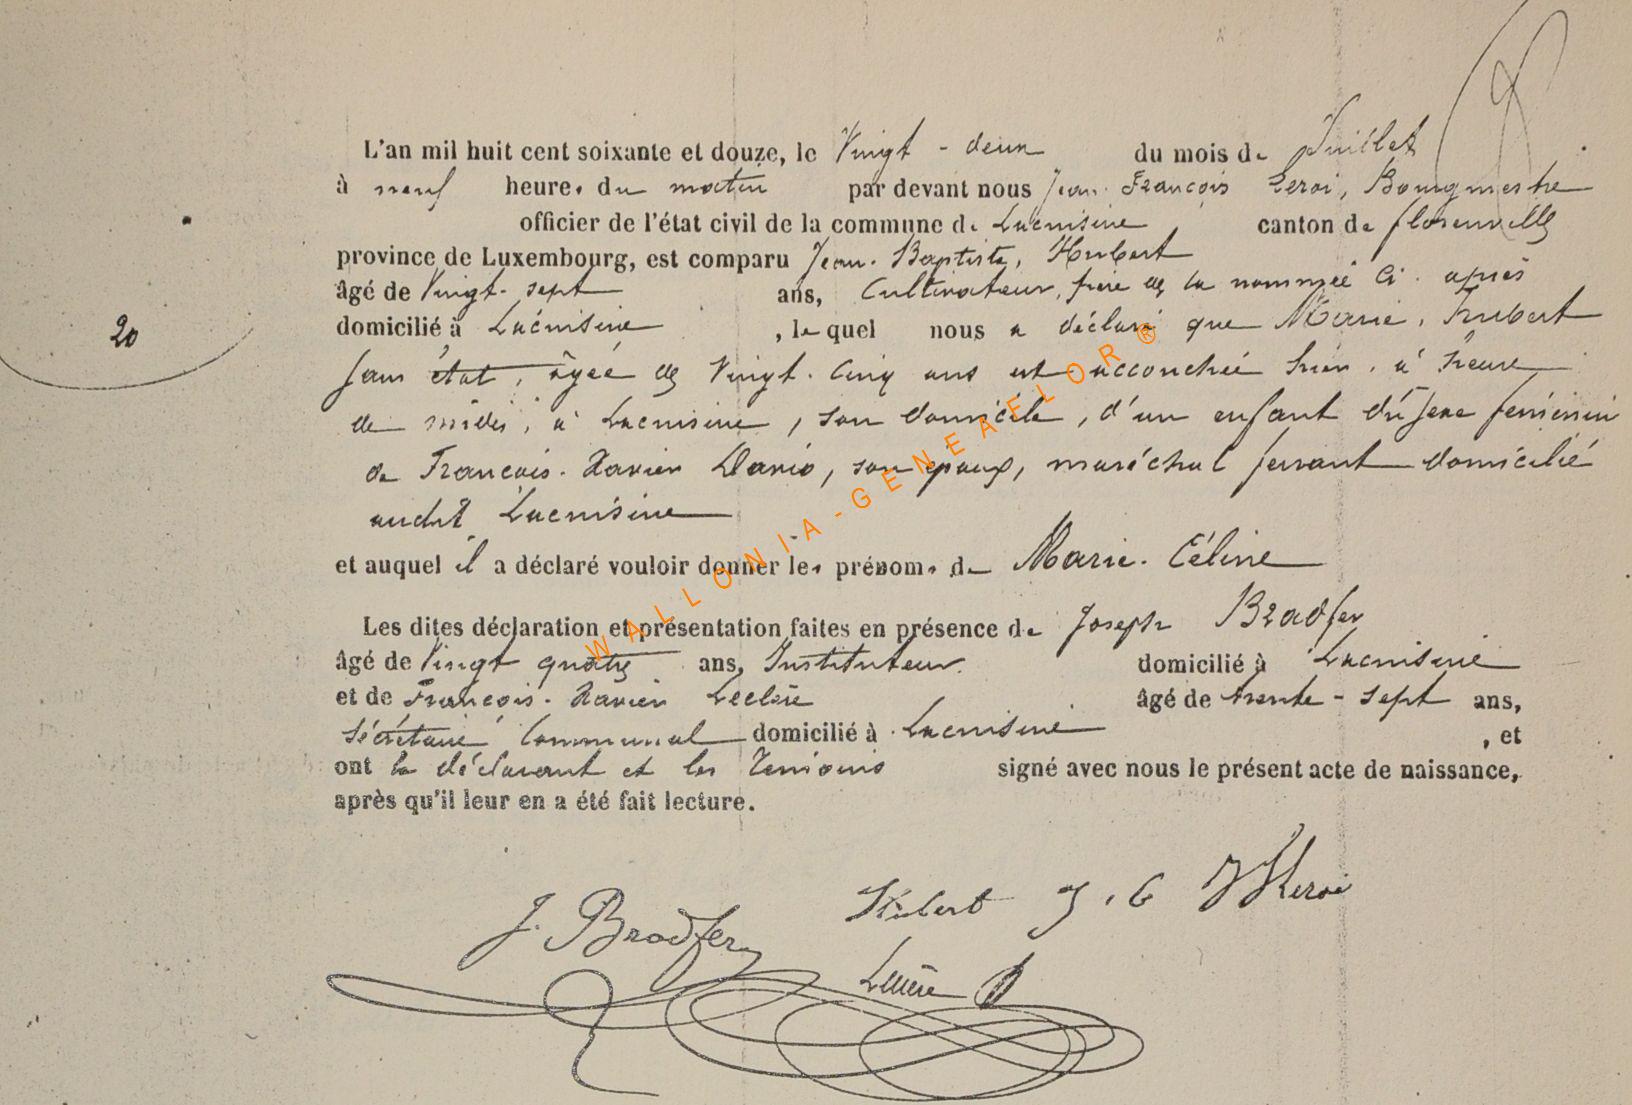 L'an mil huit cent soixante et douze, le Vingt-deux du mois de Juillet
à neuf heures du matin par devant nous Jean-François Leroi, Bourgmestre
officier de l'état civil de la commune de Lacuisine canton de florenville
province de Luxembourg, est comparu Jean-Baptiste, Hubert
âgé de Vingt-sept ans, Cultivateur, frère de la nommée ci-après
20
domicilié à Lacuisine, lequel nous a déclaré que Marie, Hubert
sans état, âgée de Vingt-cinq ans est accouchée hier, à heure
de midi, à Lacuisine, son domicile, d'un enfant du sexe feminin
de Francois-Xavier Dario, son epoux, maréchal ferrant domicilié
audit Lacuisine
et auquel il a déclaré vouloir donner les prénoms de Marie-Céline
Les dites déclaration et présentation faites en présence de Joseph Bradfer
âgé de Vingt quatre ans, Instituteur domicilié à Lacuisine
et de François-Xavier Leclère âgé de trente-sept ans,
Sécrétaire Communal domicilié à Lacuisine, et
ont le déclarant et les témoins signé avec nous le présent acte de naissance,
après qu'il leur en a été fait lecture.
J. Bradfer Hubert J. B Leroi
Leclère
WALLONIA-GENEAFLOR®